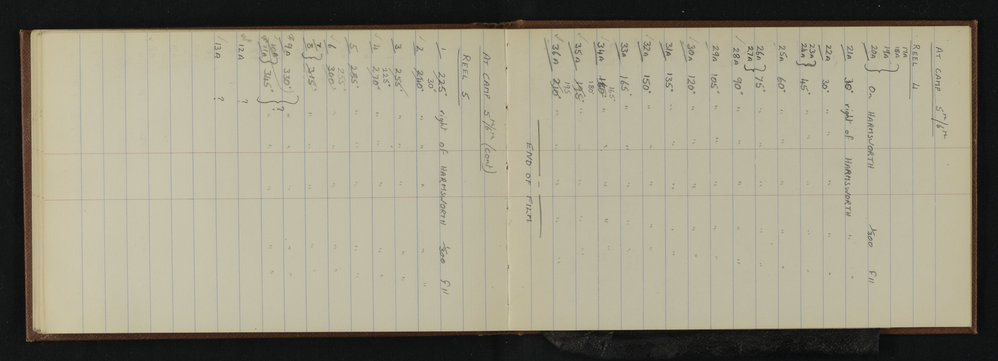 AT CAMP 5 m/6 m
REEL 4
17A
18A
19A
20A } ON HARMSWORTH 1/500 F11
21A 30° right of HARMSWORTH " "
22A 30° " " " "
23A
24A } 45° " " " "
25A 60° " " " "
26A
27A } 75° " " " "
√ 28A 90° " " " "
29A 105° " " " "
√ 30A 120° " " " "
31A 135° " " " "
√ 32A 150° " " " "
33A 165° " " "
√ 34A 180° 165° " " "
√ 35A 195° 180 " " " "
√ 36A 210° 195 " " " "
END OF FILM
AT CAMP 5 m/6 m (cont)
REEL 5
1 225° right of HARMSWORTH 1/500 F11
√ 2 240° 30° " " " "
3 255° " " " "
√ 4 270° 225° " " " "
5 285° " " " "
√ 6 300° 255° " " " "
7
8 } 315° " " " "
9A 330° " " "
10A
11A } 345° } ? " " " "
12A ?
√ 13A ?